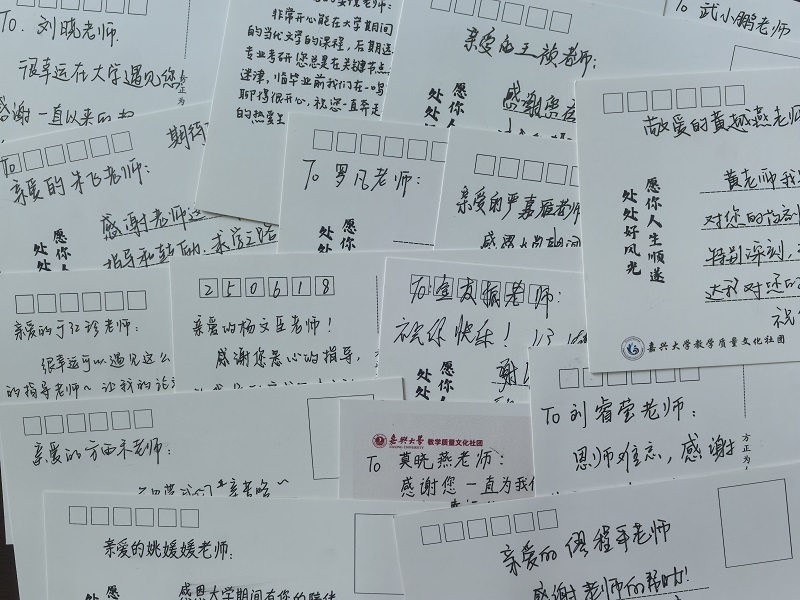 To. 刘晓老师.
很幸运在大学遇见您
感谢一直以来的
老师:
非常开心能在大学期间
的当代文学的课程,后期选
专业考研您总是在关键节点
迷津,临毕业前我们在一
聊得很开心,祝您一直
的热爱
亲爱的王祯老师:
愿你
处处
感谢您在
To 武小鹏老师
敬爱的黄越燕老师
愿你人生顺遂
处处好风光
黄老师我
对您的
特别深刻,
达我对您的
祝
嘉兴大学教学质量文化社团
To
亲爱的朱飞老师:
期待
感谢老师这
指导和鼓励,求学之路
愿你
处处
To 罗凡老师:
愿你
处处
亲爱的严嘉雁老师
感恩大学期间
亲爱的于红珍老师:
很幸运可以遇见这么
的指导老师~ 让我的论
250618
亲爱的杨文臣老师!
感谢您悉心的指导,
To:宣友振老师:
祝你快乐!
愿你人
处处
谢
亲爱的方西禾老师:
To 刘睿莹老师:
恩师难忘,感谢
方正为
嘉兴大学 教学质量文化社团
To 莫晓燕老师:
感谢您一直为我们
亲爱的姚媛媛老师:
愿
感恩大学期间有你的陪伴
亲爱的缪程平老师
感谢老师的帮助!